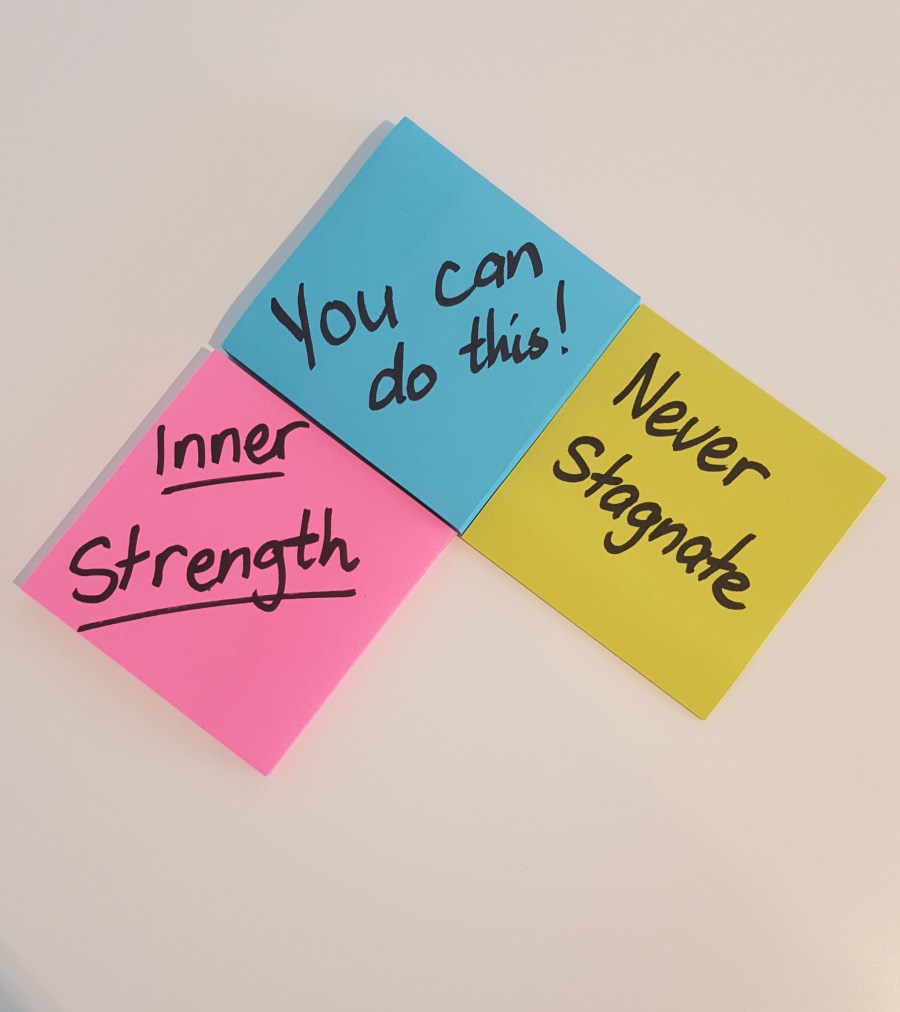 You can
do this!
Inner
Strength
Never
Stagnate